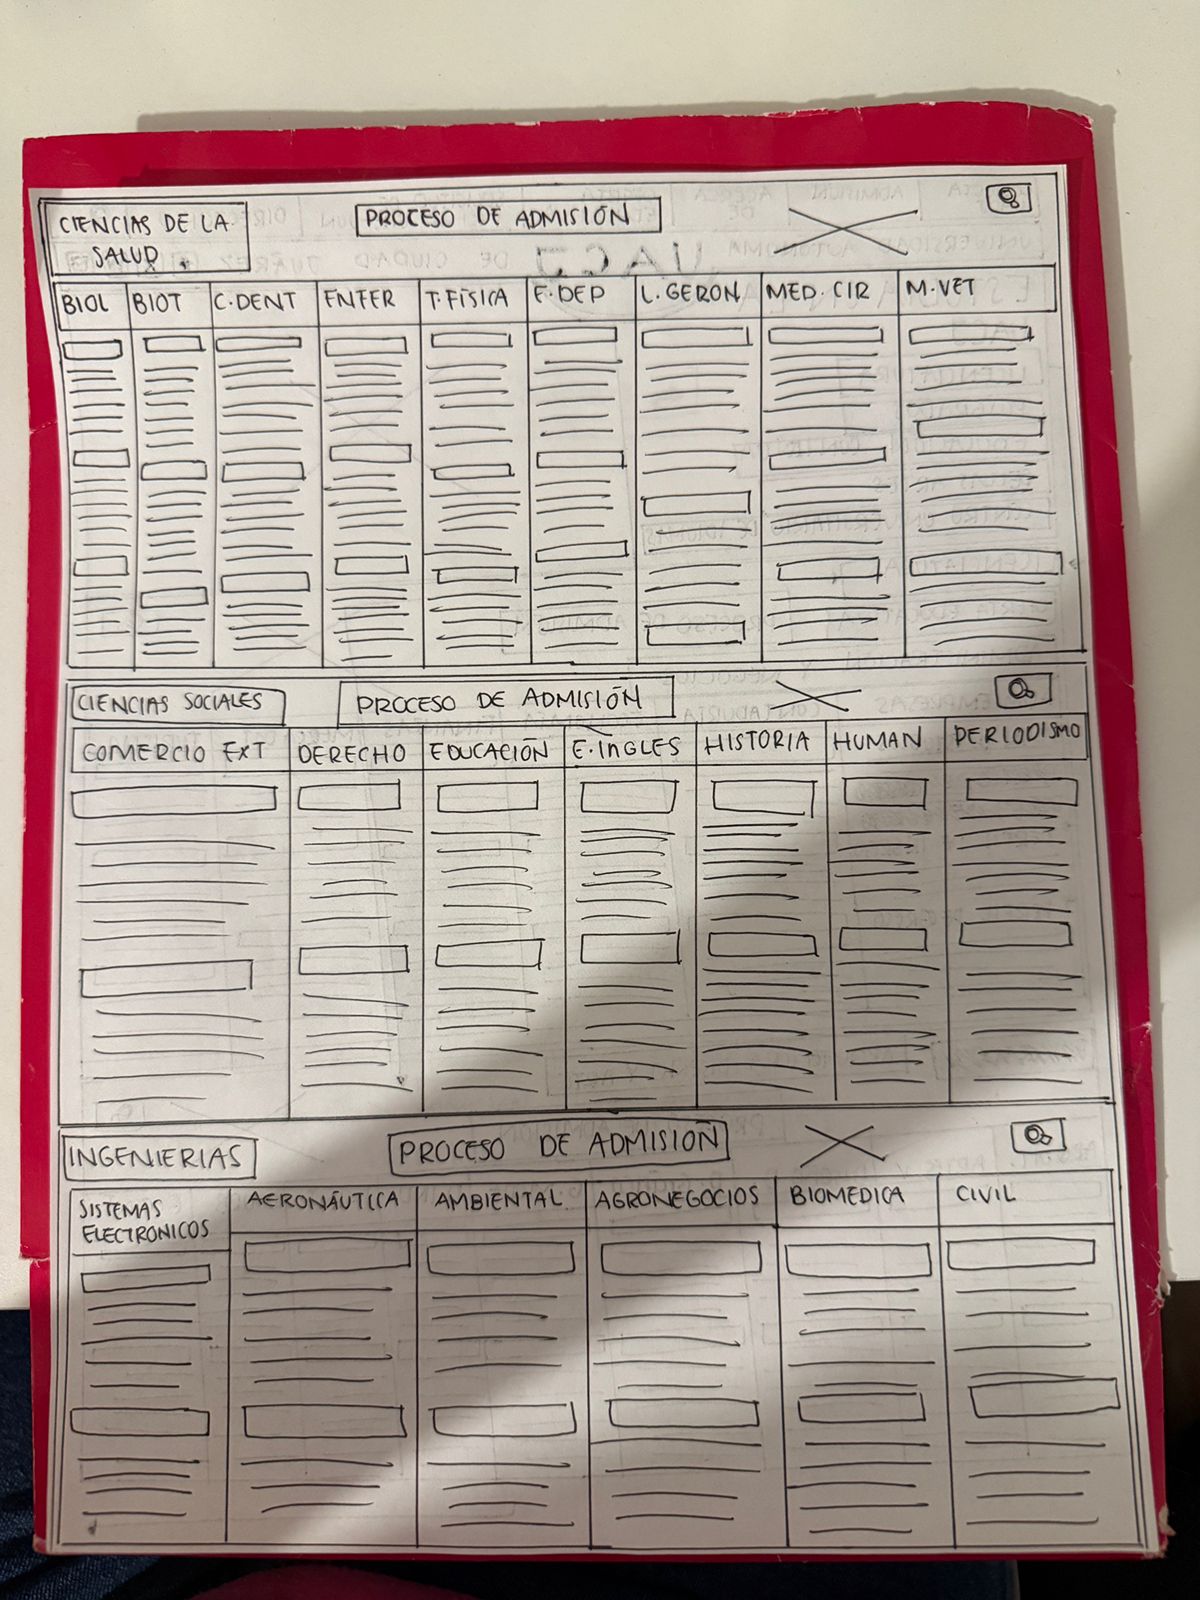 CIENCIAS DE LA
SALUD
PROCESO DE ADMISIÓN
BIOL
BIOT
C.DENT
ENFER
T.FÍSICA
E.DEP
L.GERON
MED. CIR
M.VET
CIENCIAS SOCIALES
PROCESO DE ADMISIÓN
COMERCIO EXT
DERECHO
EDUCACIÓN
E.INGLES
HISTORIA
HUMAN
PERIODISMO
INGENIERIAS
PROCESO DE ADMISIÓN
SISTEMAS
ELECTRONICOS
AERONÁUTICA
AMBIENTAL
AGRONEGOCIOS
BIOMEDICA
CIVIL